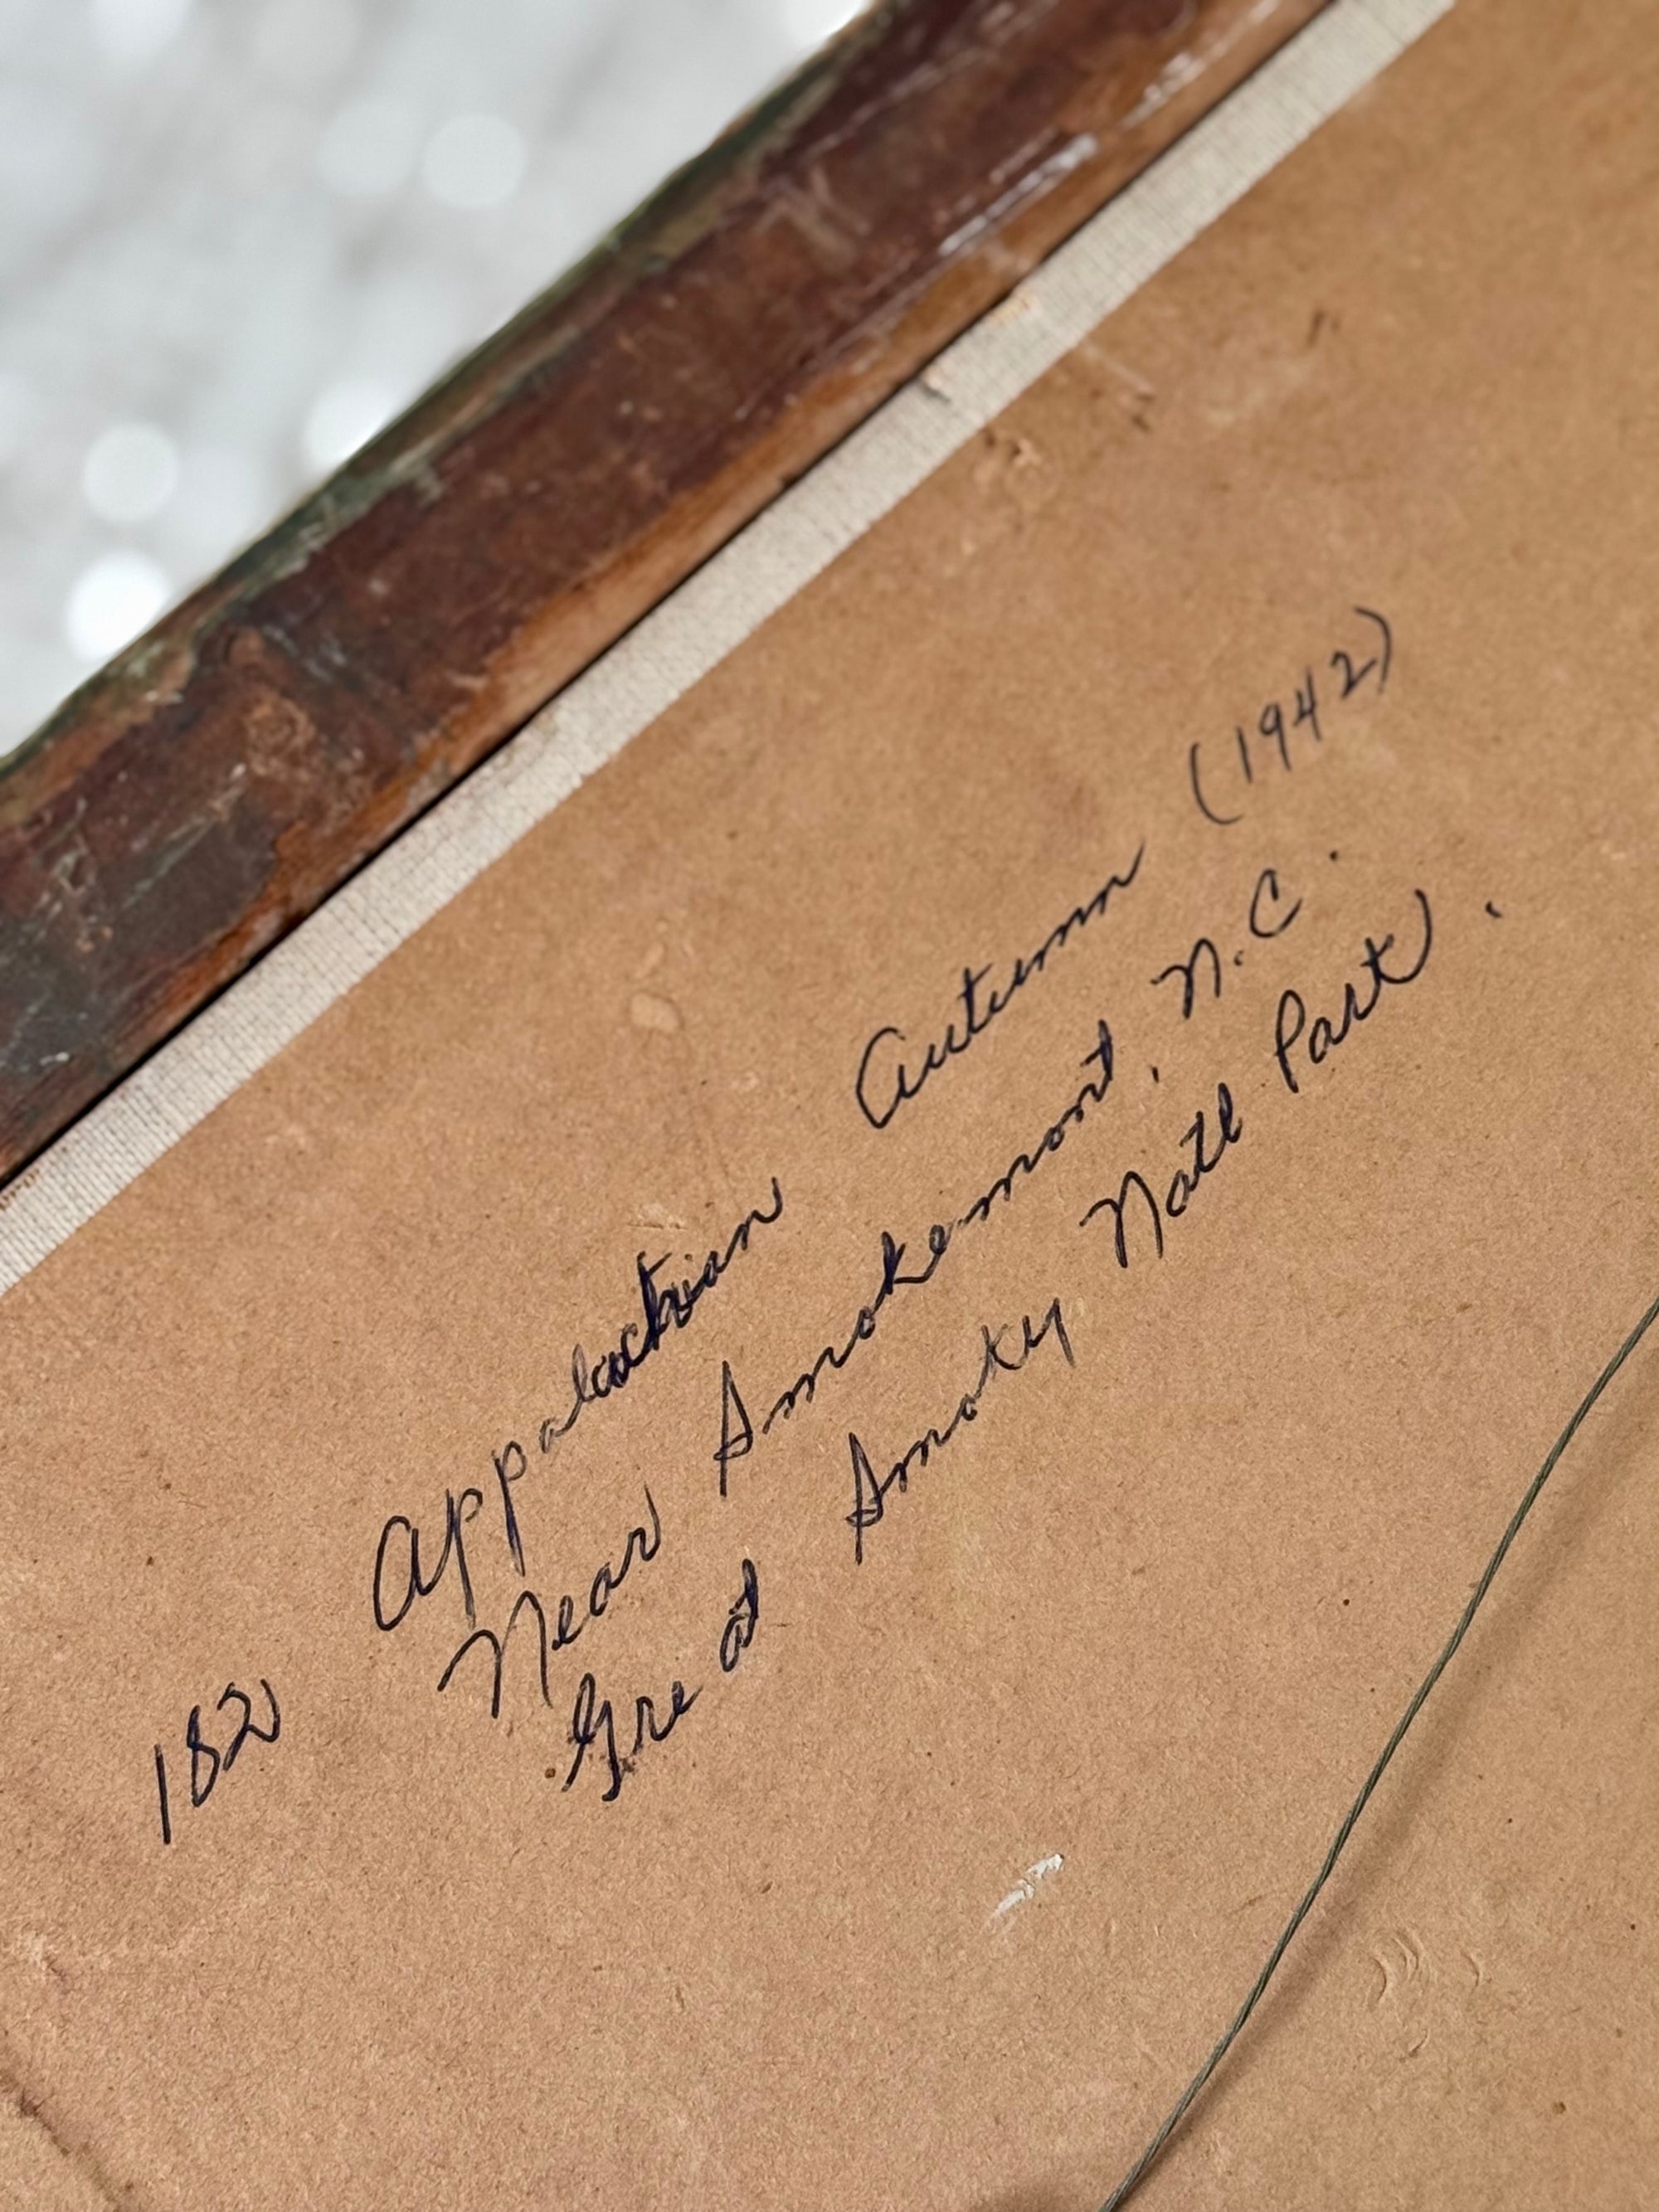 182 Appalachian Autumn (1942)
Near Smokemont, N.C.
Great Smoky Natl Park.